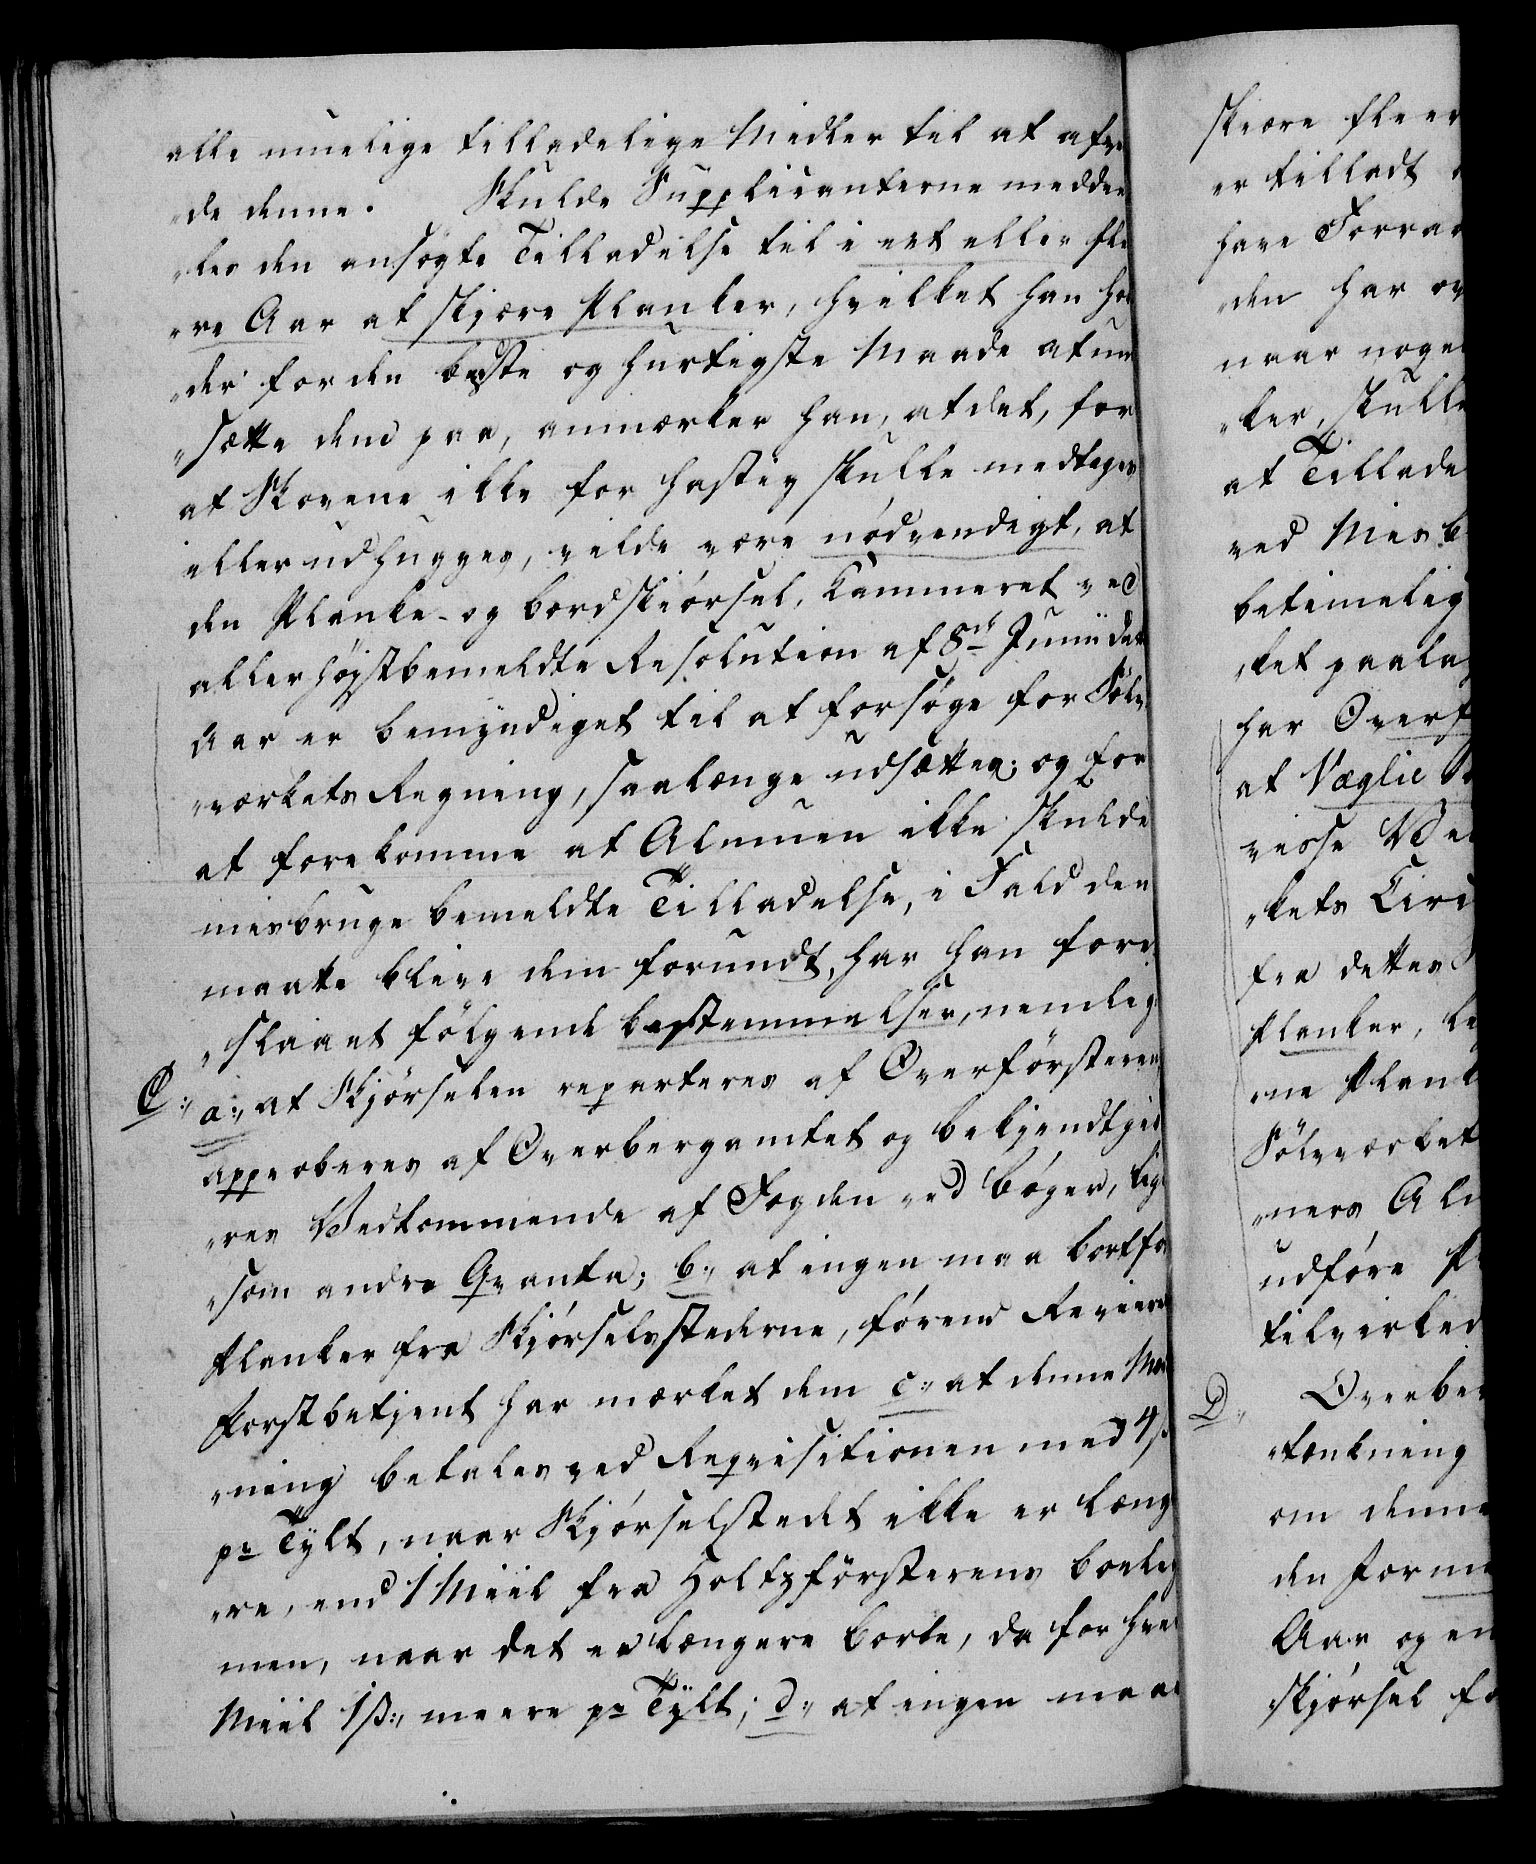 alle muelige tilladelige Midler til at afve
„de denne. Skulde Supplicanterne meddee
„les den ansøgte Tilladelse til i eet eller fle
„re Aar at skjære Planker, hvilket han hol
„der for den beste og hurtigste Maade at
„sætte dem paa, anmærker han, at det, for
at Skovene ikke for hastig skulle medtages
eller udhugges, vilde være nødvendigt, at
den Planke- og bordskiørsel, Kammeret ved
allerhøystbemeldte Resolution af 8de Junii dette
Aar er bemyndiget til at forsøge for Sølv
„værkets Regning, saalænge udsættes; og for
at forekomme at Almuen ikke skulde
misbruge bemeldte Tilladelse, i Fald den
maatte blive dem forundt, har han fore
„slaaet følgende bestemmelser, nemlig
C., a., at Skjørselen reparteres af Overførsteren
approberes af Overbergamtet og bekjendtgiø
„res Vedkommende af Fogden ved bøger, lige
„som andre Qvanta; b., at ingen maa bortføre
Planker fra Skjørselsstederne, førend Revierets
Forstbetjent har mærket dem c., at denne Mær
„ning betales ved Reqvisitionen med 4 ß
pr Tylt, naar Skjørselstedet ikke er læng
„re, end 1 Miil fra Holtzførsterens boelig
men, naar det er længere borte, da for hver
Miil 1 ß., meere pr Tylt; d., at ingen maae
skiære fleer
er tilladt
have Forraad
„den har
naar noge
„ker, skulle
at Tillade
ved Misb
betimelig
„ket paala
har Overf
at Næglie
visse
„kets Circ
fra dettes
Planker,
„ne Plank
Sølvværket
„ners Al
udføre Pl
tilvirked
D., Overber
„tænkning
om denne
den forme
Aar og en
Skjørsel fo